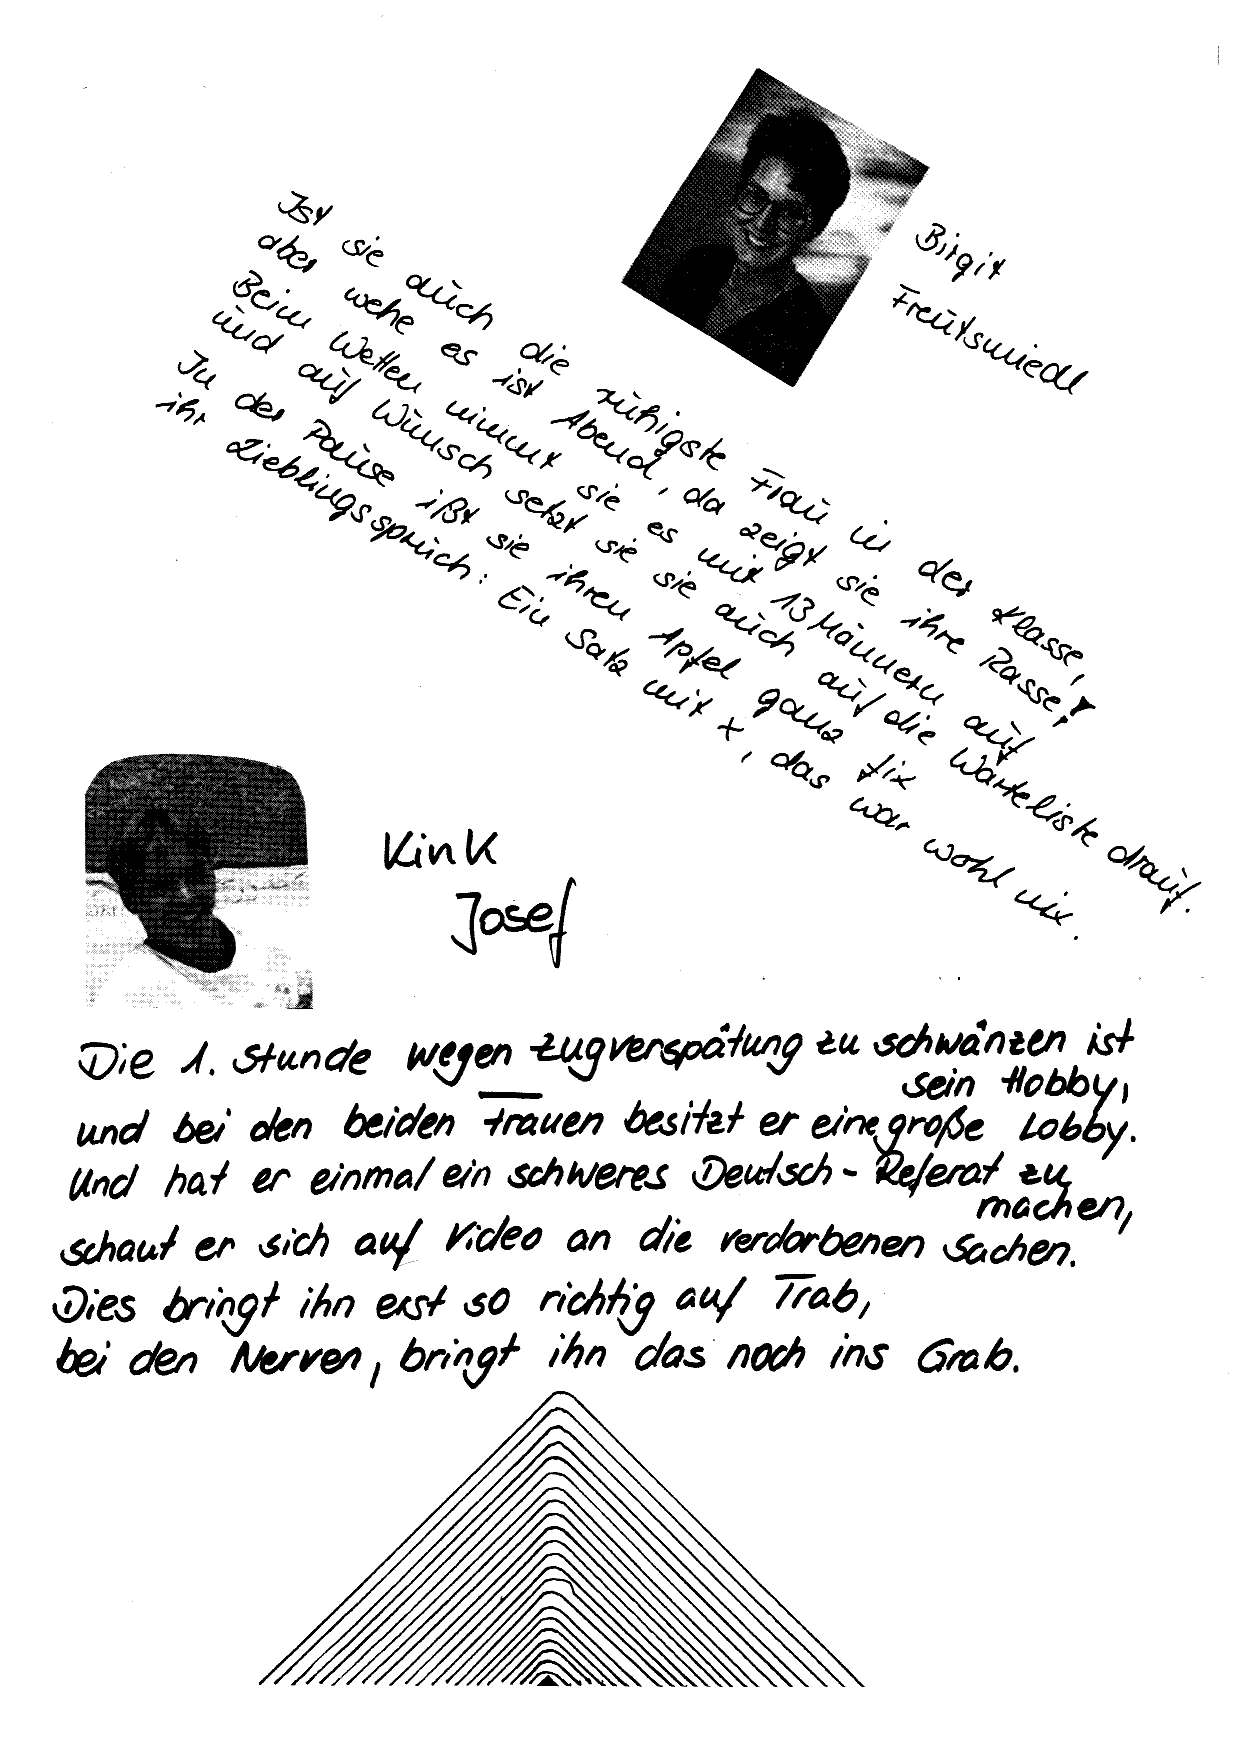 Birgit
Freutsmiedl
Ist sie auch die ruhigste Frau in der Klasse,
aber wehe es ist Abend, da zeigt sie ihre Rasse!
Beim Wetten nimmt sie es mit 13 Männern auf
und auf Wunsch setzt sie sie auch auf die Warteliste drauf.
In der Pause ißt sie ihren Apfel ganz fix
ihr Lieblingsspruch: Ein Satz mit x, das war wohl nix.
Kink
Josef
Die 1. Stunde wegen Zugverspätung zu schwänzen ist
sein Hobby,
und bei den beiden Frauen besitzt er eine große Lobby.
Und hat er einmal ein schweres Deutsch-Referat zu
machen,
schaut er sich auf Video an die verdorbenen Sachen.
Dies bringt ihn erst so richtig auf Trab,
bei den Nerven, bringt ihn das noch ins Grab.